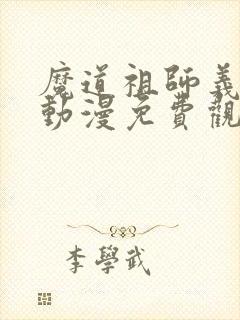 魔道祖師義
動漫免費觀
李學武